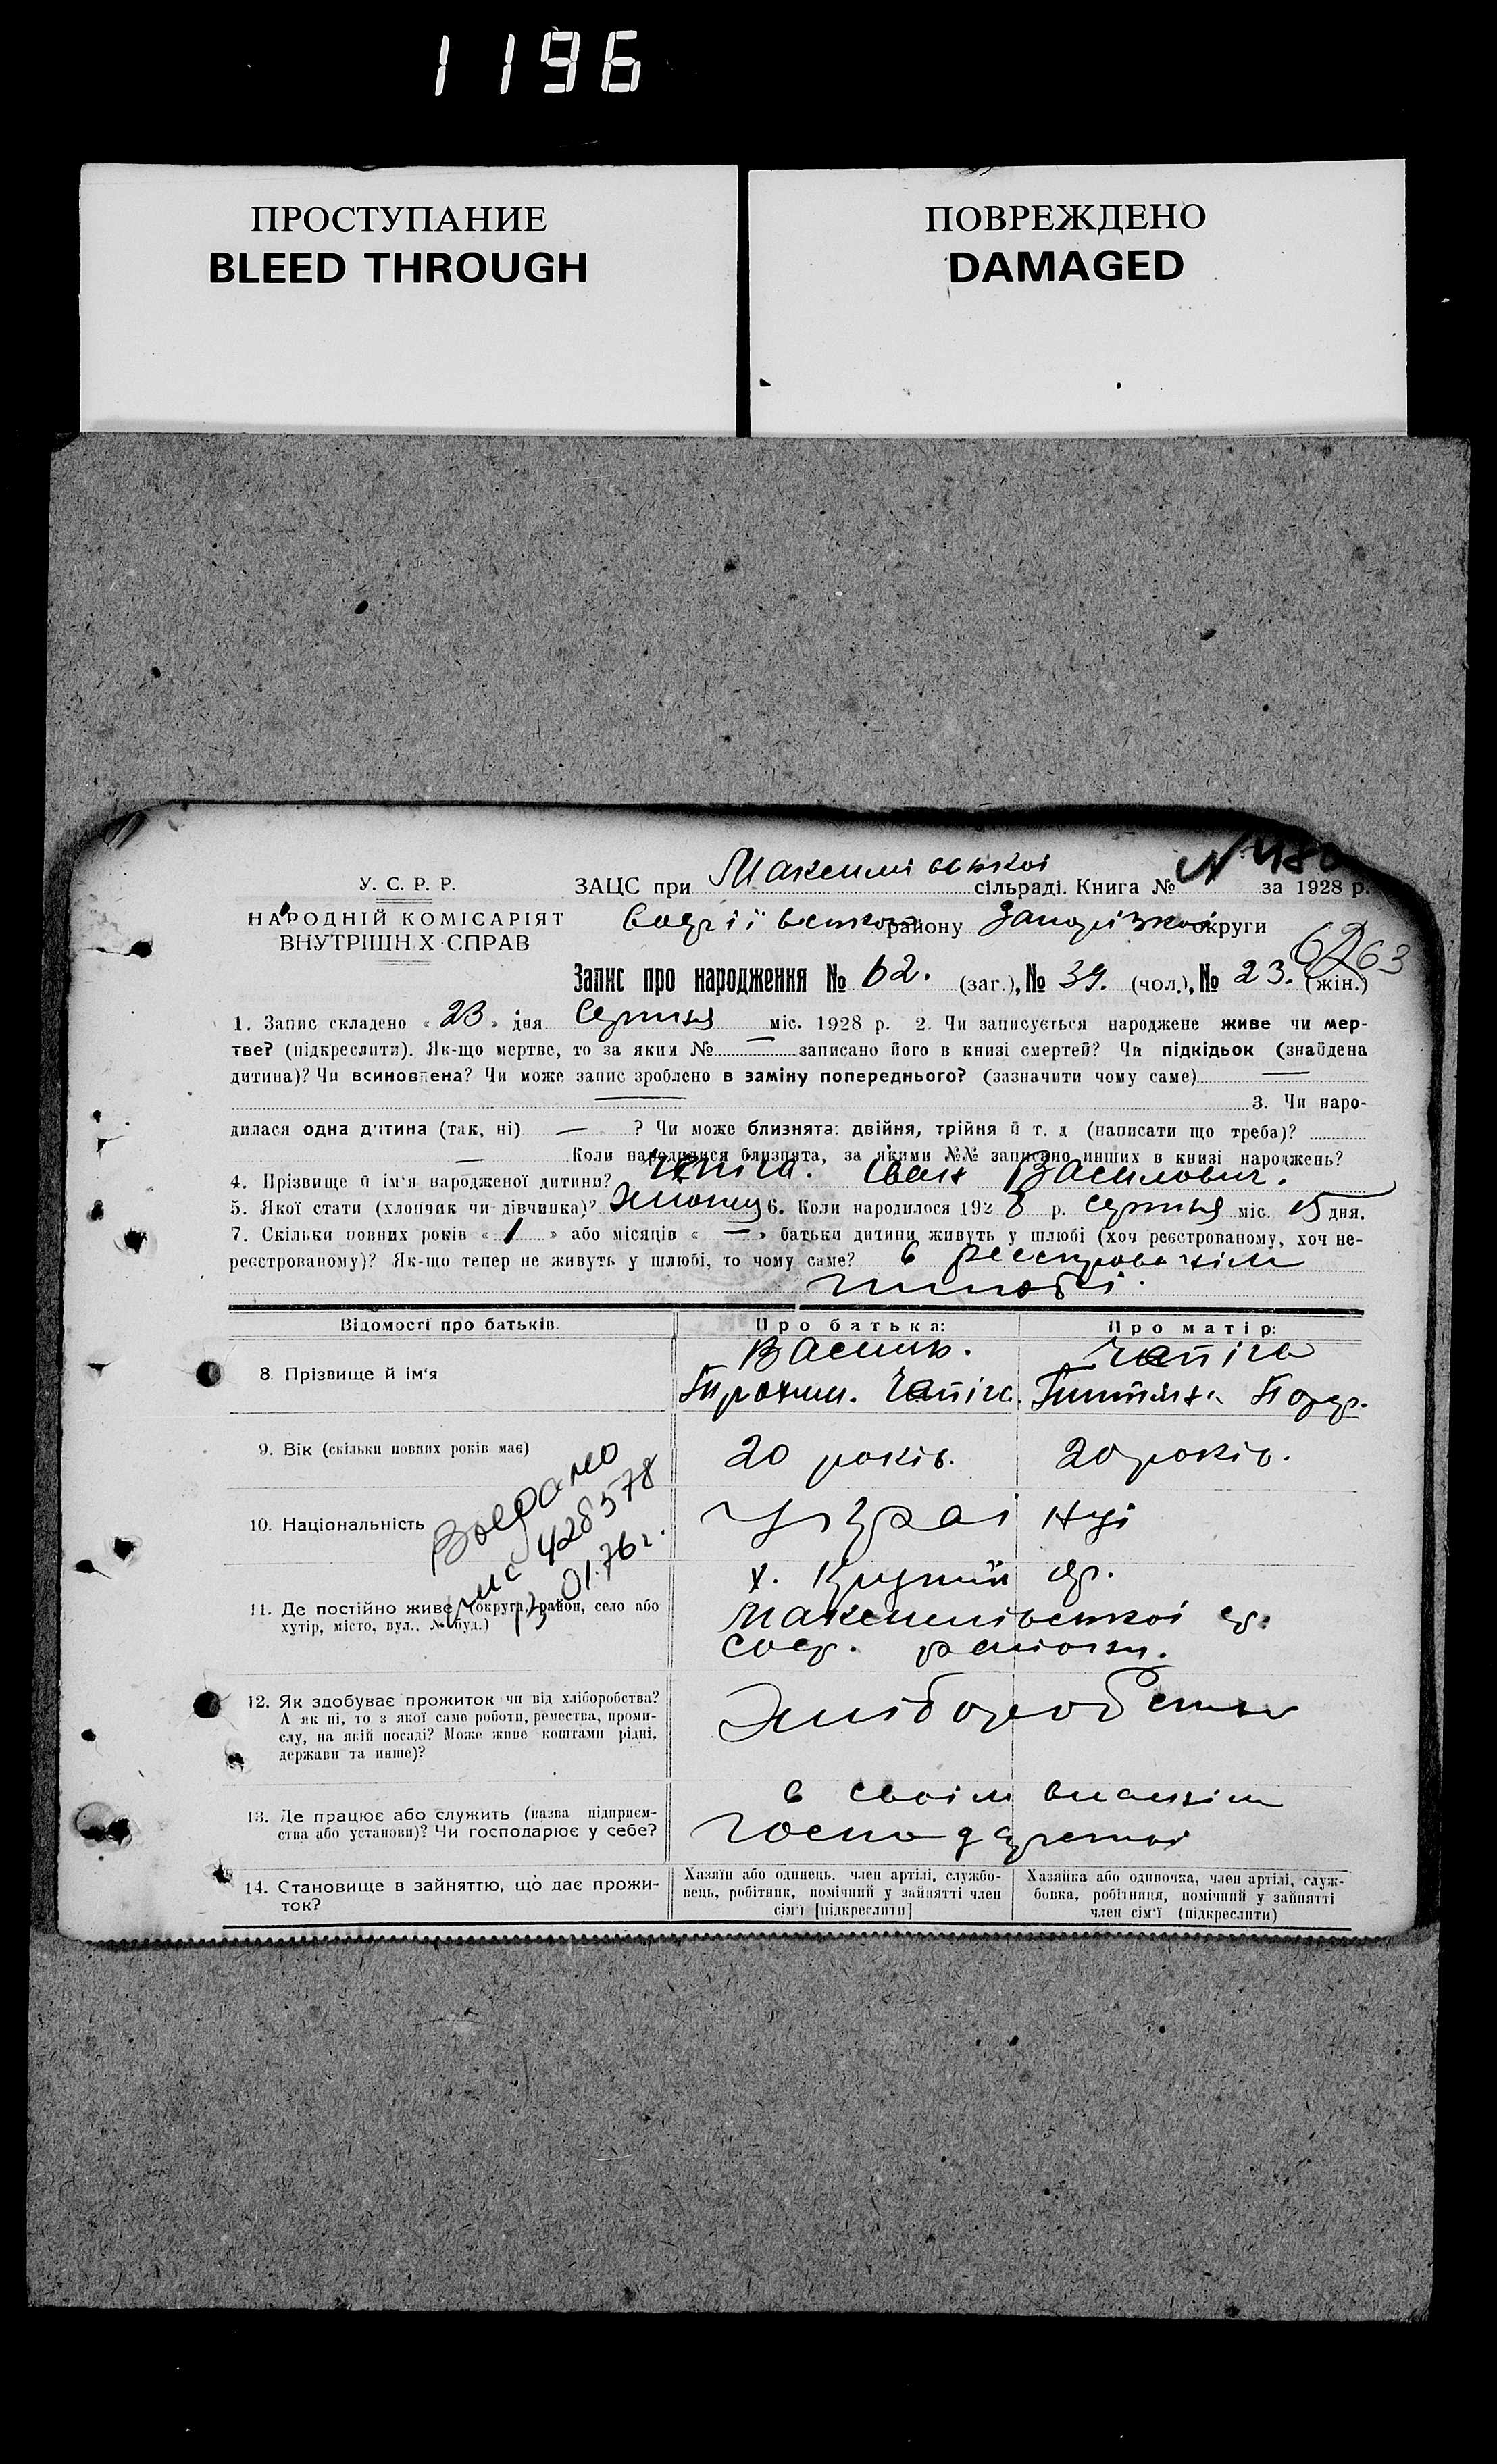 1196
ПРОСТУПАНИЕ
BLEED THROUGH
ПОВРЕЖДЕНО
DAMAGED
У. С. Р. Р.
НАРОДНІЙ КОМІСАРІЯТ
ВНУТРІШН Х СПРАВ
ЗАЦС при сільраді. Книга № за 1928 р.
району округи
6263
Запис про народження № 62. (заг.), № 39. (чол.), № 23. (жін.)
1. Запис складено « 23 » дня Серпня міс. 1928 р. 2. Чи записується народжене живе чи мер-
тве? (підкреслити). Як-що мертве, то за яким № — записано його в книзі смертей? Чи підкідьок (знайдена
дитина)? Чи всиновлена? Чи може запис зроблено в заміну попереднього? (зазначити чому саме) —
— 3. Чи наро-
дилася одна дитина (так, ні) — ? Чи може близнята: двійня, трійня й т. д (написати що треба)?
— Коли народилися близнята, за якими №№ записано инших в книзі народжень?
4. Прізвище й ім'я народженої дитини? Чапіга. Іван Василович.
5. Якої стати (хлопчик чи дівчинка)? 6. Коли народилося 1928 р. Серпня міс. 15 дня.
7. Скільки повних років « 1 » або місяців « — » батьки дитини живуть у шлюбі (хоч реєстрованому, хоч не-
реєстрованому)? Як-що тепер не живуть у шлюбі, то чому саме? в
шлюбі.
Відомості про батьків.
Про батька:
Про матір:
8. Прізвище й ім'я
Василь.
Трохим. Чапіга.
Чапіга
9. Вік (скільки повних років має)
20 років.
20 років.
10. Національність
Українці
Выдано
428578
01.76г.
11. Де постійно живе (округа, район, село або
хутір, місто, вул., № буд.)
х.
с.
12. Як здобуває прожиток чи від хліборобства?
А як ні, то з якої саме роботи, ремества, проми-
слу, на якій посаді? Може живе коштами рідні,
держави та инше)?
Хліборобство
13. Де працює або служить (назва підприєм-
ства або установи)? Чи господарює у себе?
в своїм власнім
господарстві
14. Становище в зайняттю, що дає прожи-
ток?
Хазяїн або одинець, член артілі, службо-
вець, робітник, помічний у зайнятті член
сім'ї [підкреслити]
Хазяйка або одиночка, член артілі, служ-
бовка, робітниця, помічний у зайнятті
член сім'ї (підкреслити)